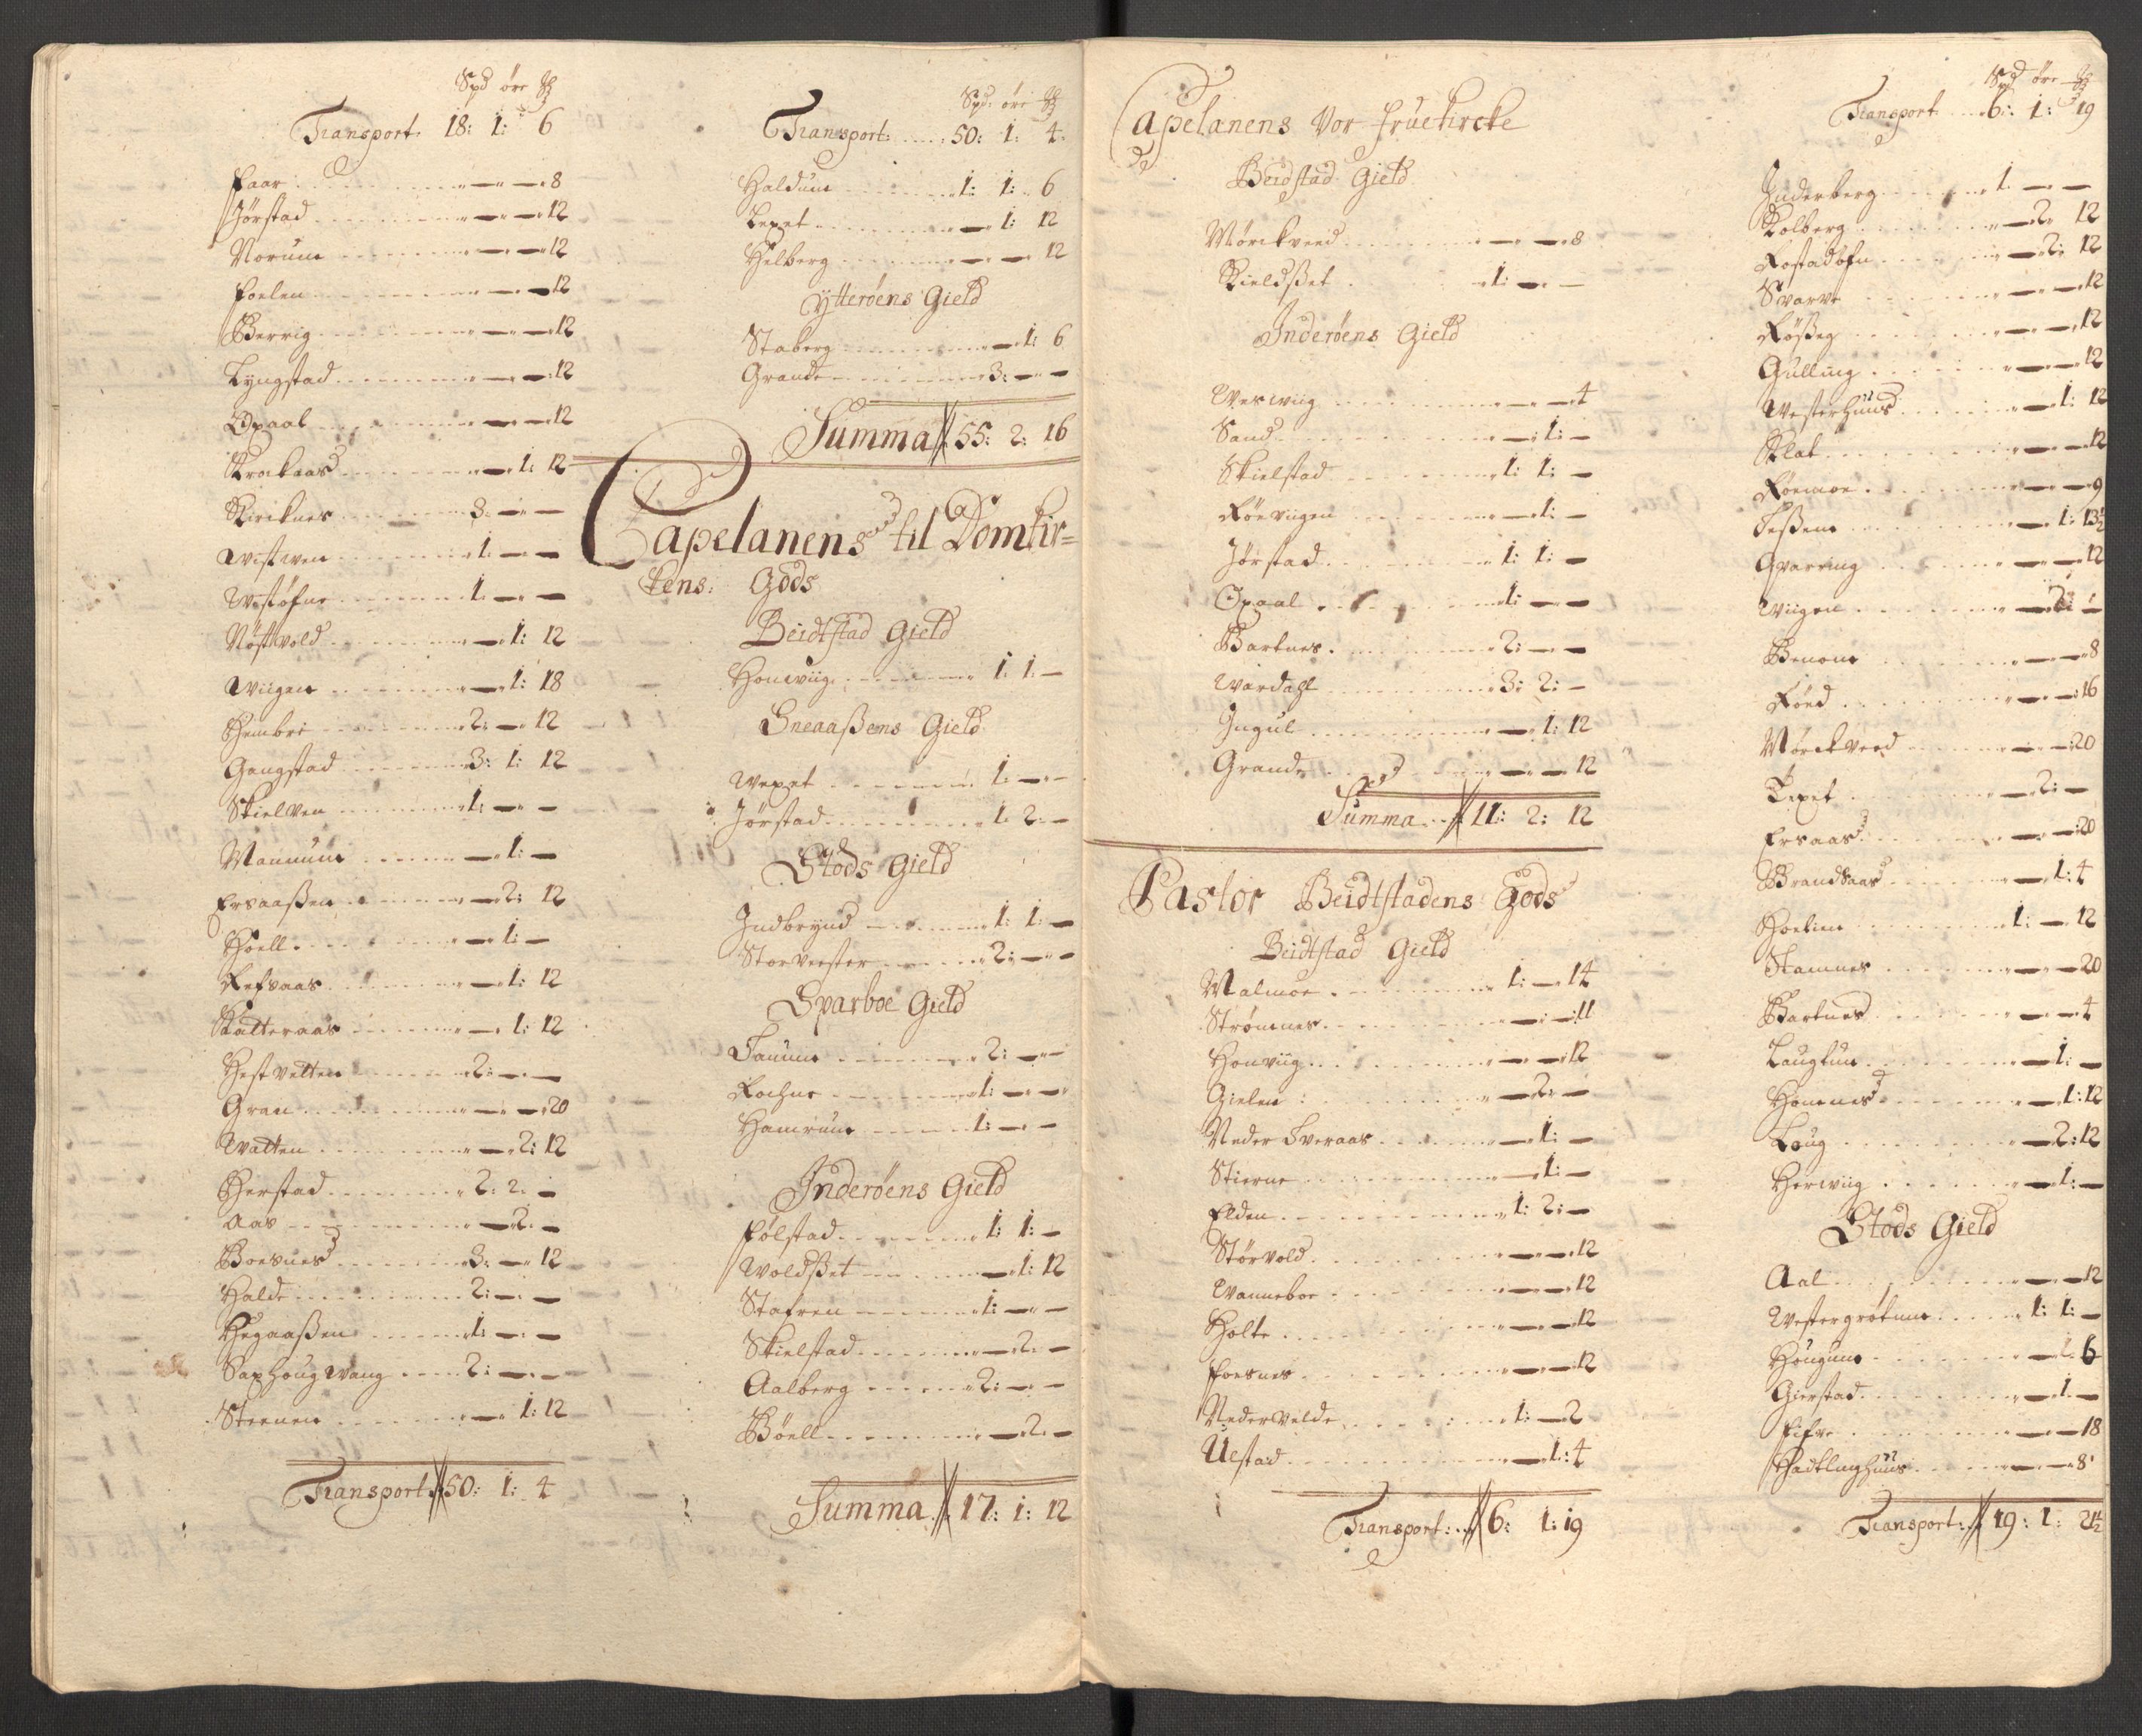 Spd öre
Transport. 18: 1: 6
Faar 8
Jørstad 12
Norum 12
Foelen 12
Berrig 12
Lyngstad 12
Opaal 12
Krokaas 1: 12
Kirknes 3: — —
Wistwen 1: — —
Wistøfne 1. — —
Nøstvold 1: 12
Wiigen 1: 18
Hembre 2: — 12
Gangstad 3: 1: 12
Skielven 1: — —
Mannum 1: —
Ersaaßen 2: 12
Hoell 1: —
Refsaas 1: 12
Kalteraas 1: 12
Hestvetten 2: — —
Gran 20
Watten 2: 12
Herstad 2: 2. —
Aas 2. —
Boesnes 3: — 12
Halde 2: — —
Hegaaßen 1: — —
Saxhoug wang 2: — —
Steenen 1: 12
Transport 50: 1: 4
Spd: öre
Transport 50: 1: 4.
Haldum 1: 1: 6
Lexet 1: 12
Helberg 12
Ytterøens Gield
Staberg 1: 6
Grande 3: — —
Summa 55: 2: 16
Capelanens til Domkir=
kens: Gods
Beidtstad Gield
Honwiig 1: 1: —
Sneaaßens Gield
Wexet 1: — —
Jørstad 1. 2: —
Stods Gield
Indbrynd 1: 1: —
Storvester 2: — —
Sparboe Gield
Saunm 2: — —
Rochne 1: — —
Hamrum 1: — —
Inderøens Gield
Følstad 1: 1: —
Woldßet 1: 12
Stafren 1: — —
Skielstad 2. —
Aalberg 2: — —
Böell 2. —
Summa 17: 1: 12
Capelanens Vor Fruekircke
Beidstad Gield
Mørckveed 8
Kieldßet 1: — —
Inderøens Gield
Weswiig 4
Sand 1: —
Skielstad 1: 1: —
Røeviigen 1: —
Jørstad 1: 1: —
Opaal 1: — —
Bartnes 2: — —
Wardahl 3: 2: —
Ingul 1: 12
Grande 12
Summa 11: 2: 12
Pastor Beidtstadens Gods
Beidtstad Gield
Malmoe 1: — 14
Strömnes 11
Honviig 12
Gielen 2: —
Neder Sveraas 1: —
Stierne 1: —
Elden 1: 2: —
Störvold 12
Wanneboe 12
Holte 12
Foesnes 12
Nedervelde 1: — 2
Uestad 1: 4
Transport: 6: 1: 19
Spd öre
Transport 6: 1: 19
Inderberg 1 — —
Kolberg 2: 12
Rostadøfn 2: 12
Svarve 12
Røßeg 12
Gulling 12
Westerhuus 1: 12
Klat 12
Röemoe 9
Seßem 1: 13½
Qvarving 12
Wiigen 2: —
Benom 8
Röed 16
Mørckveed 20
Texet 2: —
Ersaas 20
Brandsaas 1: 4
Hoelien 1: — 12
Stamnes 20
Bartnes 4
Laugtun 1: —
Homnes 1: 12
Loug 2: 12
Herwiig 1: —
Stods Gield
Aal 12
Westergrøtum 1: 1: —
Hougum 2: 6
Gierstad 1. —
Fifre 18
Hadtlinghuus 8
Transport: 19: 1: 21½